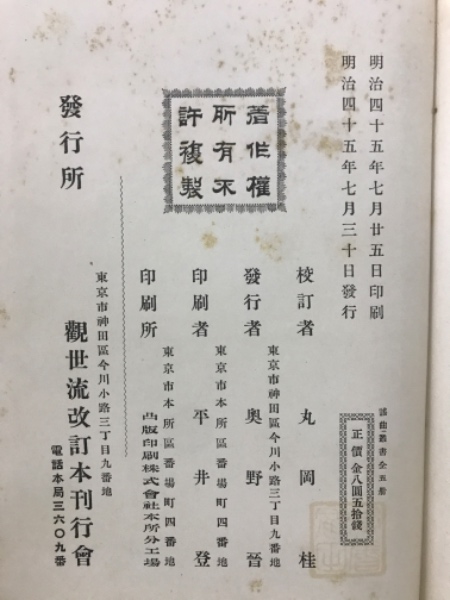 明治四十五年七月廿五日印刷
明治四十五年七月三十日發行
謠曲叢書全五册
正價金八圓五拾錢
著作權
所有不
許複製
校訂者 丸岡桂
東京市神田區今川小路三丁目九番地
發行者 奧野晉
東京市本所區番場町四番地
印刷者 平井登
東京市本所區番場町四番地
印刷所 凸版印刷株式會社本所分工場
發行所
東京市神田區今川小路三丁目九番地
觀世流改訂本刊行會
電話本局三六〇九番